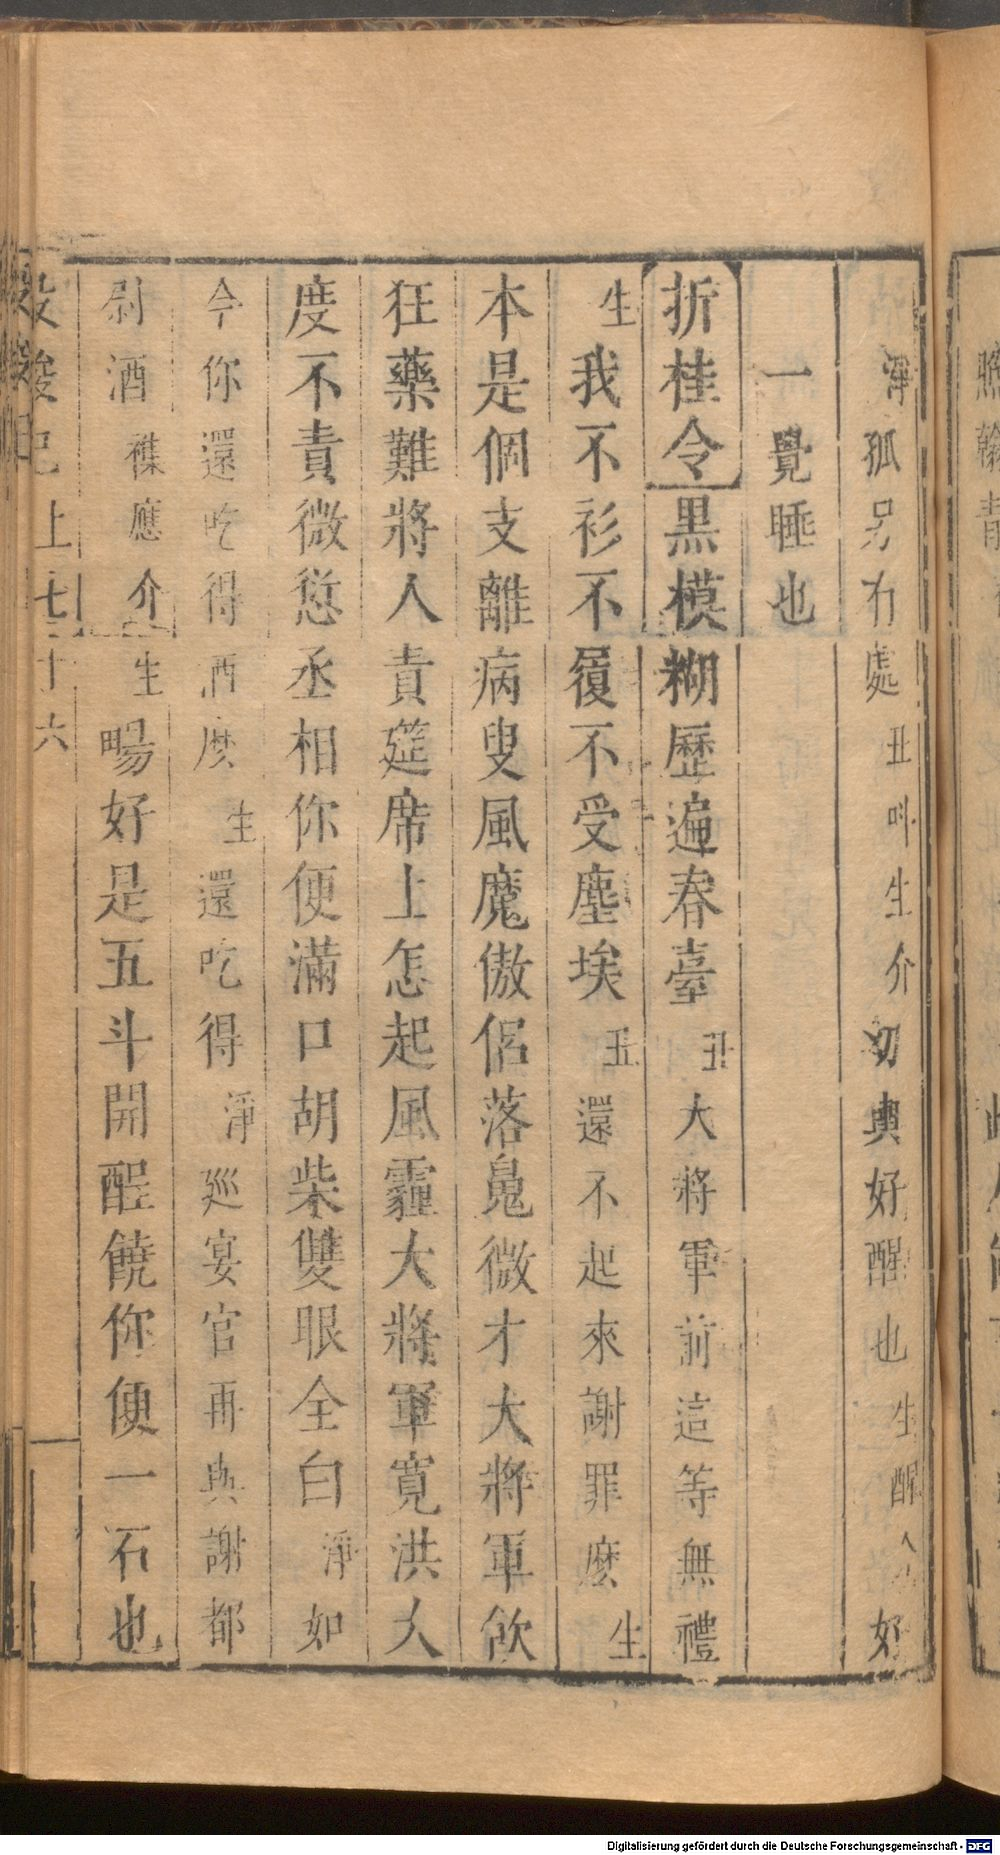 淨孤另冇處丑呌生介刃輿好醒也生醒介好
一覺睡也
折桂令黒模糊歷遍春臺丑大將軍前這等無禮
生我不衫不履不受塵埃丑還不起來謝罪麽生
本是個支離病叟風魔傲侶落魄微才大將軍飲
狂藥難將人責筵席上怎起風霾大將軍寛洪人
度不責微愆丞相你便滿口胡柴雙眼全白淨如
今你還吃得酒麽生還吃得淨廵宴官再與謝都
尉酒襍應介生暢好是五斗開酲饒你便一石也
上七十六
Digitalisierung gefördert durch die Deutsche Forschungsgemeinschaft - DFG